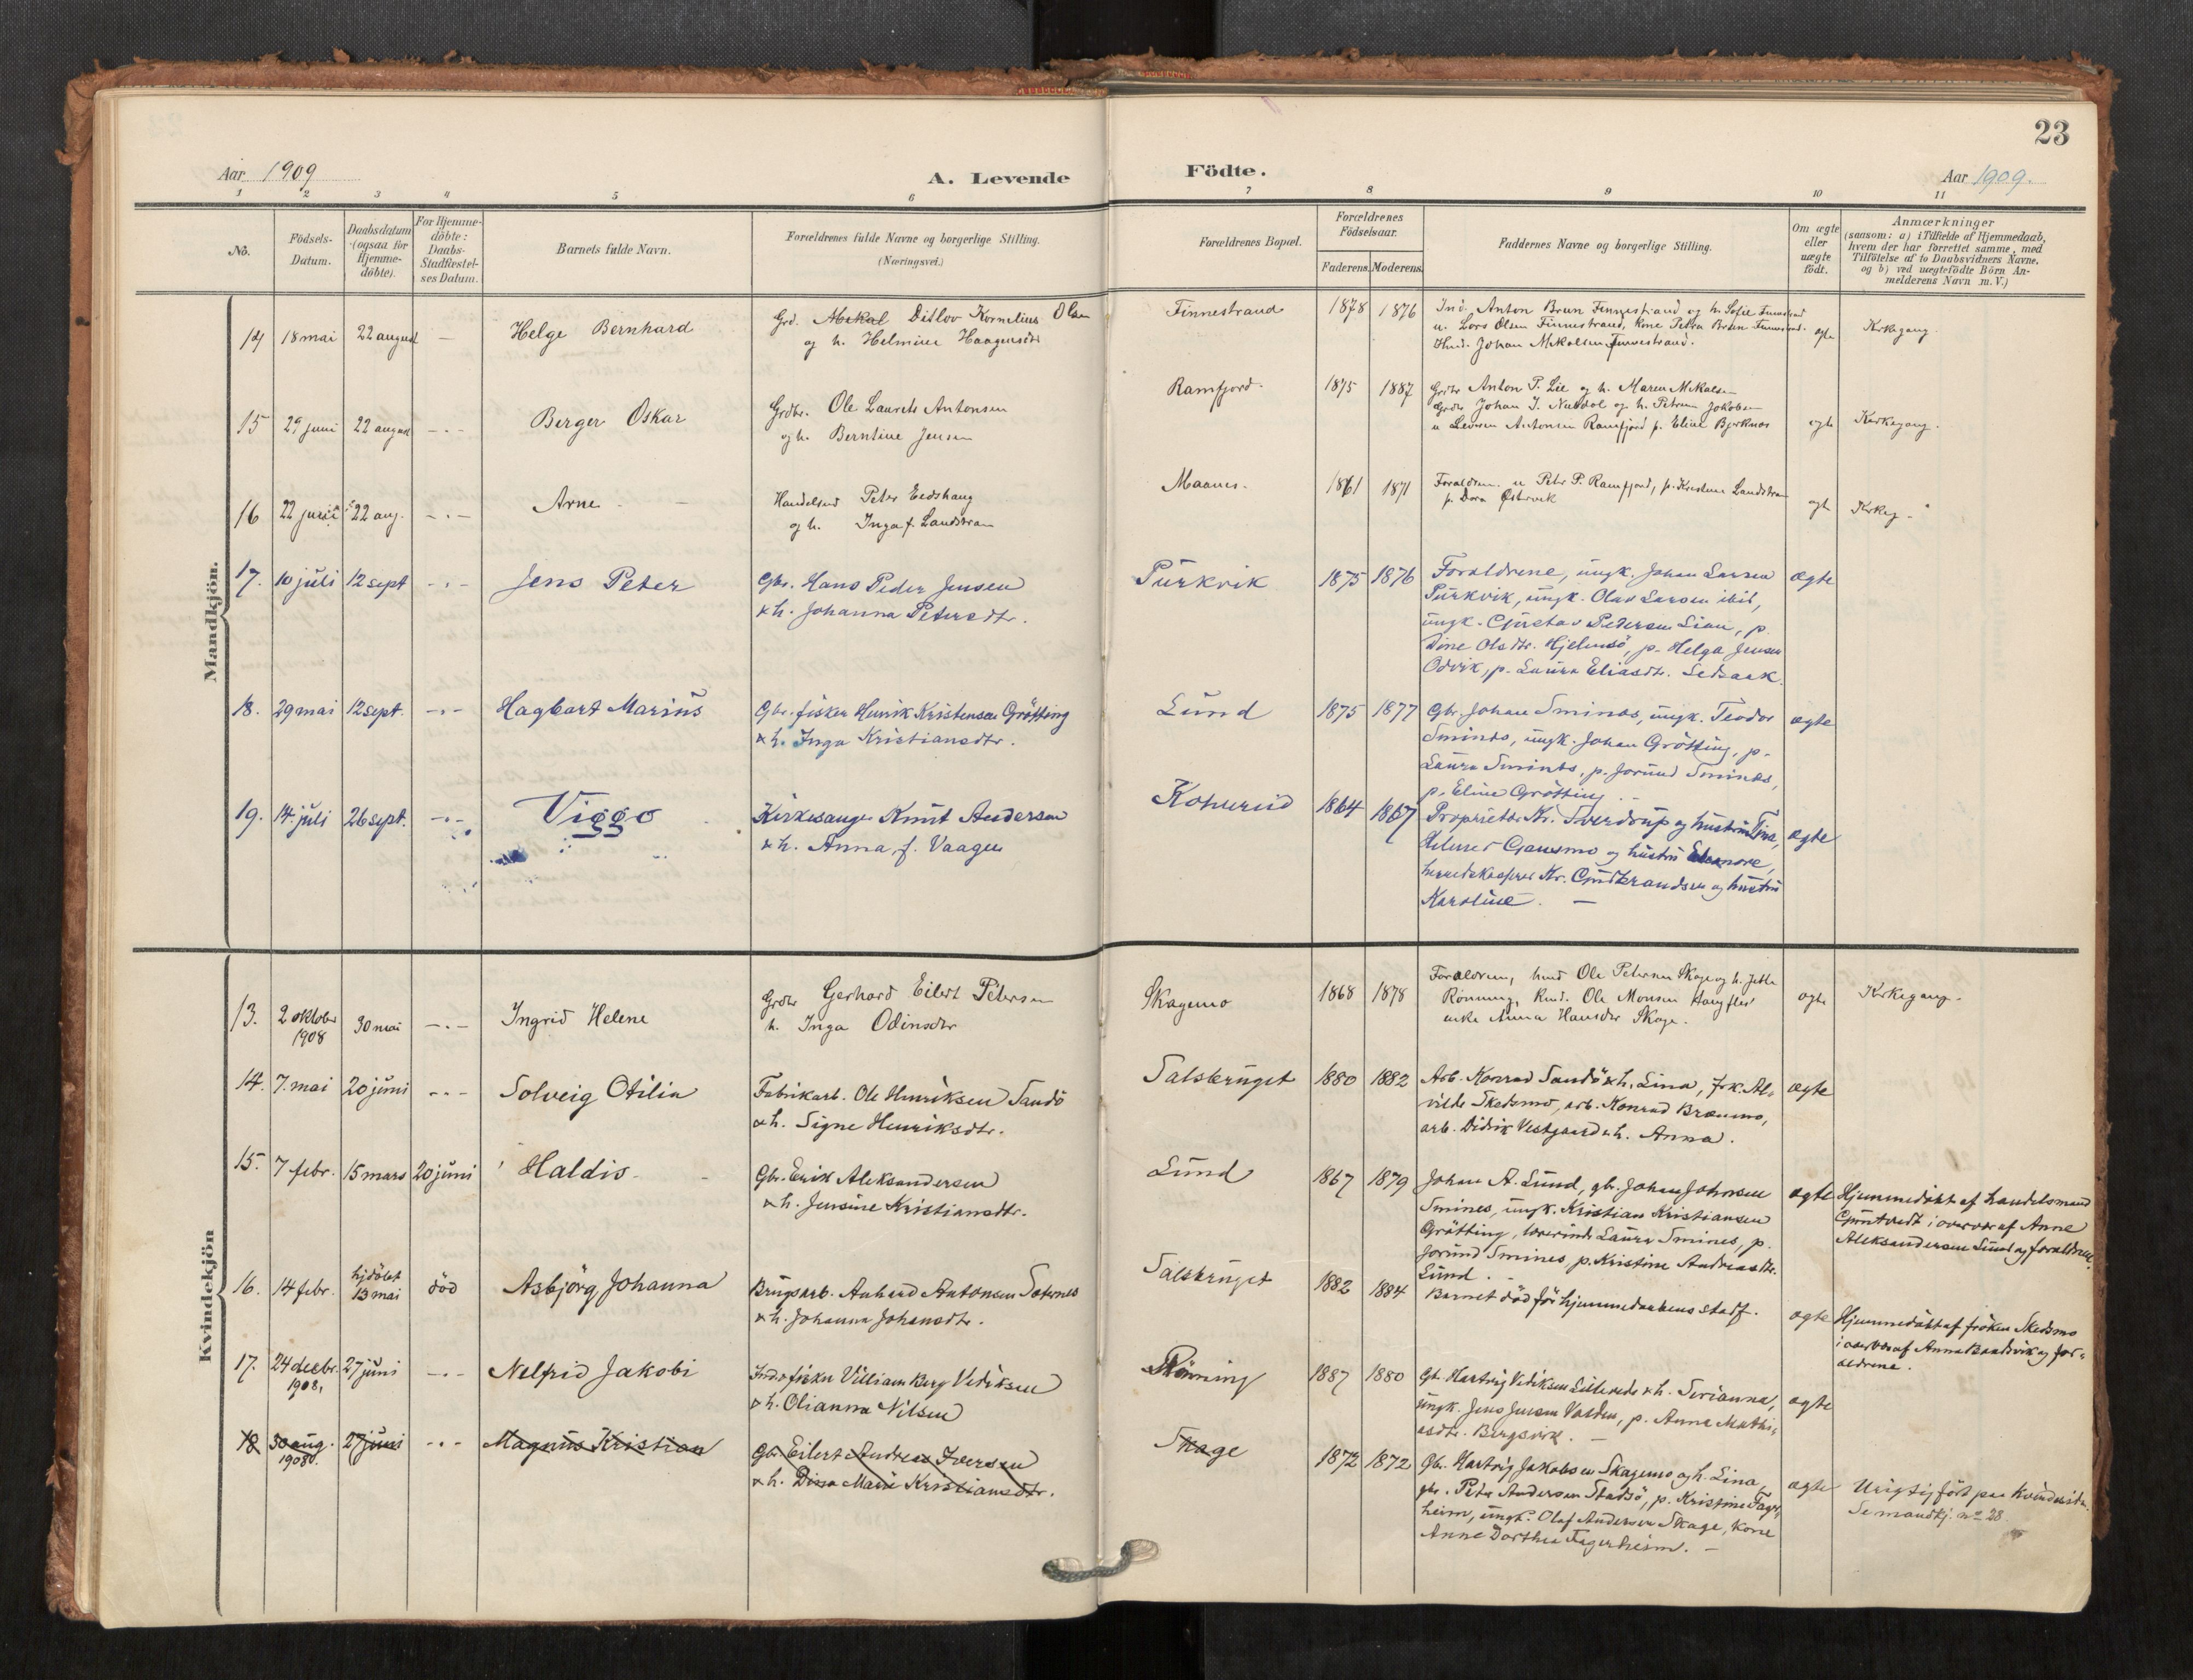 23
Aar 1909
A. Levende
Födte.
Aar 1909.
1 2 3 4 5 6 7 8 9 10 11
No.
Födsels-
Datum.
Daabsdatum
(ogsaa for
Hjemme-
döbte).
For Hjemme-
döbte:
Daabs-
Stadfæstel-
ses Datum.
Barnets fulde Navn.
Forældrenes fulde Navne og borgerlige Stilling.
(Næringsvei.)
Forældrenes Bopæl.
Forældrenes
Födselsaar.
Faderens. Moderens.
Faddernes Navne og borgerlige Stilling.
Om ægte
eller
uægte
födt.
Anmærkninger
(saasom: a) i Tilfælde af Hjemmedaab,
hvem der har forrettet samme, med
Tilföielse af to Daabsvidners Navne.
og b) ved uægtefödte Börn An-
melderens Navn m. V.)
Mandkjön.
14 18 mai 22 august — Helge Bernhard
Grd. Mekal Ditlov Kornelius Olsen
og h. Helmine Haagensdtr
Finnestrand 1878 1876
Ind. Anton Brun Finnestrand og h. Sofie
u. Lars Olsen Finnestrand, kone Petra Brun
Johan Mikalsen Finnestrand.
egte Kirkegang.
15 29 juni 22 august -.- Berger Oskar
Grdbr. Ole Laurets Antonsen
og h. Berntine Jensen
Ramfjord. 1875 1887
Grdbr Anton P. Lie og h. Maren Mikalsen
Grdbr Johan J. og h. Petrine Jakobsen
u Antonsen Ramfjord p. Eline Bjorknos
egte Kirkegang.
16 22 juni 22 aug. -.- Arne
Handelsmd Peter Eedshaug
og h. Inga f. Landstran
Maanes. 1861 1871
Foraldrene u Petr P. Ramfjord, p. Kristine Landstran
p. Dora Østervik
egte Kirkeg.
17. 10 juli 12 sept -.- Jens Peter
Gbr. Hans Peder Jensen
& h. Johanna Petersdtr.
Purkvik 1875 1876
Foraldrene, ungk. Johan Larsen
Purkvik, ungk. Olav Larsen ibid,
ungk. Gustav Pedersen Lian, p.
Dine Olsdtr. Hjelmsö, p. Helga Jensen
Odvik, p. Laura Eliasdtr. Sedsaak.
ægte
18. 29 mai 12 sept. -.- Hagbart Marius
Gbr. fisker Henrik Kristensen Grötting
& h. Inga Kristiansdtr.
Lund 1875 1877
Gbr. Johan Smines, ungk. Teodor
Smines, ungk. Johan Grötting, p.
Laura Smines, p. Jorund Smines,
p. Eline Grötting
ægte
19. 14. juli 26 sept. -.- Viggo
Kirkesanger Knut Anderson
& h. Anna, f. Vaagen
1864 1867
Proprietær Kr. Sverdrup og hustru Tina,
Helmer Gansmo og hustru Eleanore,
herredskasserer Kr. Gudbrandsen og hustru
Karoline. —
ægte
Kvindekjön
13. 2 oktober
1908 30 mai -.- Ingrid Helene
Grdbr Gerhard Eilert Petersen
h. Inga Odinsdtr
Skagemo 1868 1878
Foraldrene, hmd Ole Petersen Skage og h. Jette
Rönning, Hmd. Ole Monsen Haugflet
enke Anna Hansdtr Skage.
egte Kirkegang.
14. 7. mai 20 juni -.- Solveig Otilia
Fabrikarb. Ole Henriksen Sandö
& h. Signe Henriksdtr.
Salsbruget 1880 1882
Arb. Konrad Sandö & h. Lina, frk. Al-
vilde Skedsmo, arb. Konrad Brænmo,
arb. Didrik Vestgaard & h. Anna.
ægte
15. 7 febr. 15 mars 20 juni Haldis
Gbr. Erik Aleksandersen
& h. Jensine Kristiansdtr.
Lund 1867 1879
Johan A. Lund, gbr. Johan Johnsen
Smines, ungk. Kristian Kristiansen
Grötting, lærerinde Laura Smines, p.
Jorund Smines, p. Kristine Andreasdtr.
Lund.
ægte
Hjemmedöbt af handelsmand
Guntvedt i overvær af Anne
Aleksandersen Lund og foraldrene.
16. 14 febr. hjdöbt
13 mai död Asbjörg Johanna
Brugsarb. Anhard Antonsen Saternes
& h. Johanna Johansdtr.
Salsbruget 1882 1884
Barnet död för hjemmedaabens stadf.
ægte
Hjemmedöbt af fröken Skedsmo
i overvær af Anna Baadsvik og for-
ældrene.
17. 24 decbr.
1908, 27 juni -.- Nelfrid Jakobi
Inds. fisker Villiam Berg Vediksen
& h. Olianna Nilsen
Rönning 1887 1880
Gb. Hartvig Vediksen Lillevede & h. Serianna,
ungk. Jens Jensen Valden, p. Anna Mathi-
asdtr. Bergsvik. —
ægte
18 30 aug.
1908. 27 juni -.- Magnus Kristian
Gbr. Eilert Andreas Iversen
& h. Dina Marie Kristiansdtr.
Skage 1872 1872
Gbr. Hartvig Jakobsen Skagemo og h. Lina,
gbr. Peter Andersen Stadsö, p. Kristine Fager-
heim, ungk. Olaf Andersen Skage, kone
Anne Dorthea Fagerheim. —
ægte
Urigtig fört paa kvindesiden.
Se mandkj. no 28.